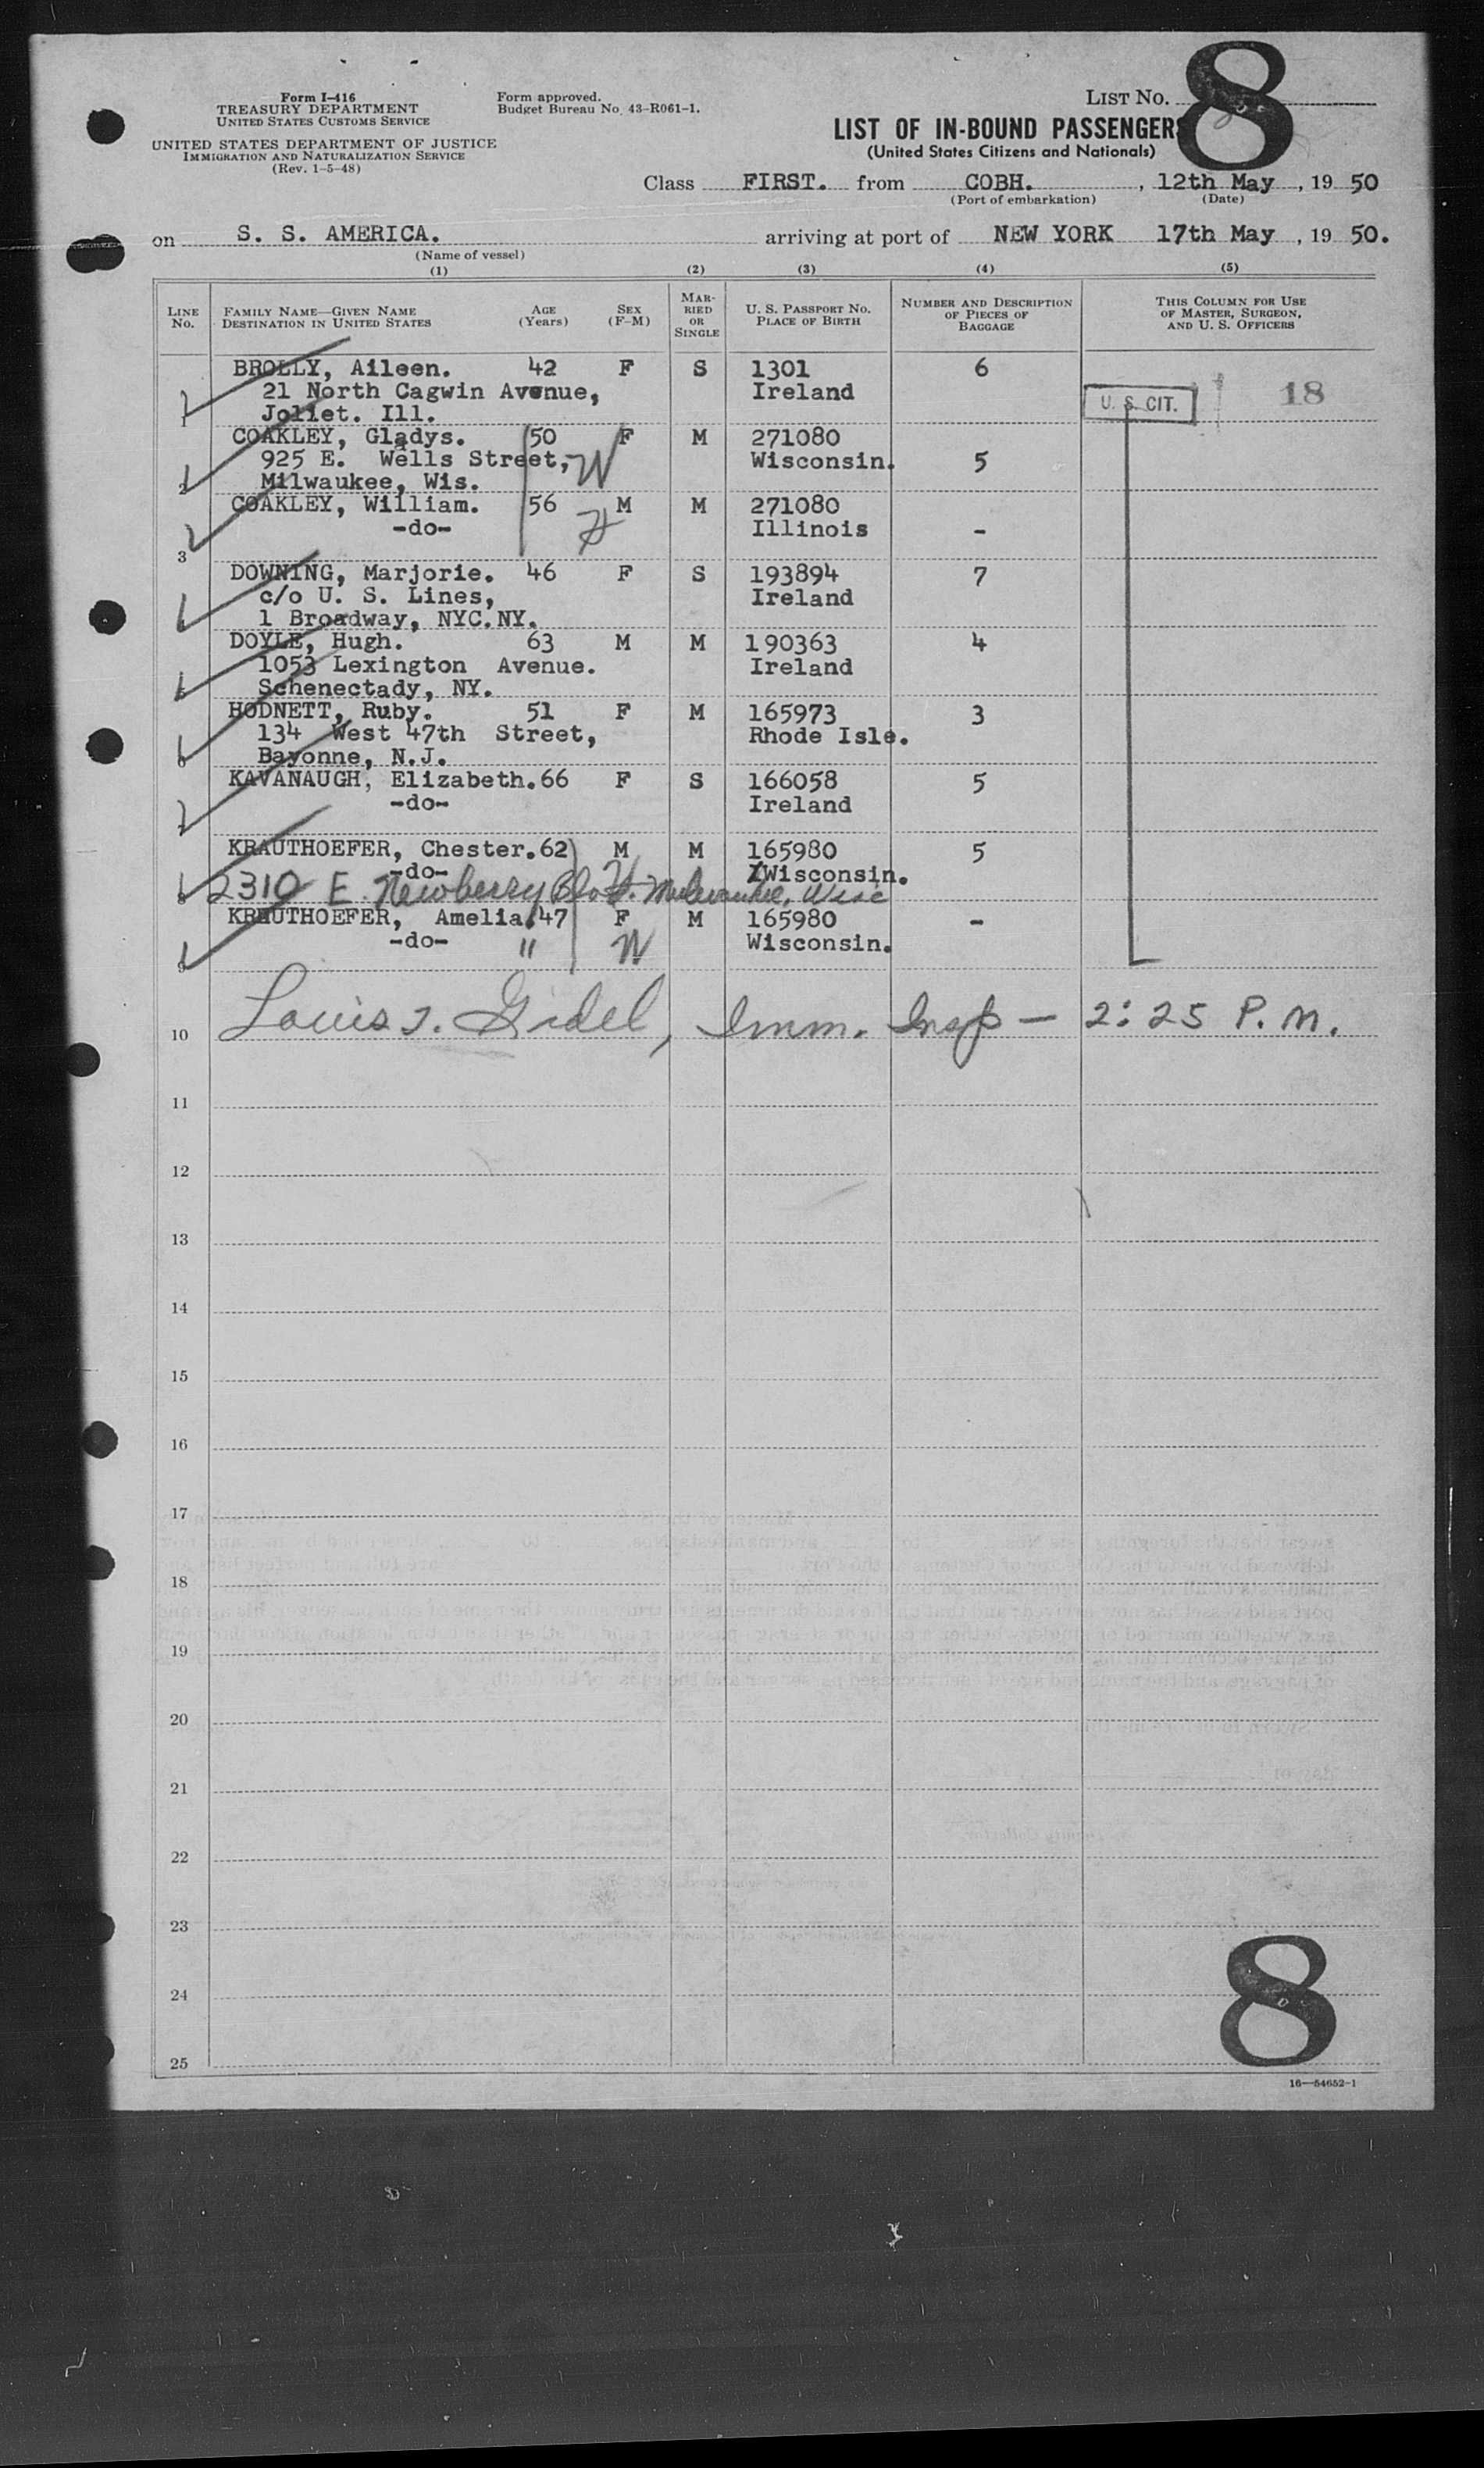 Form I-416
TREASURY DEPARTMENT
UNITED STATES CUSTOMS SERVICE
UNITED STATES DEPARTMENT OF JUSTICE
IMMIGRATION AND NATURALIZATION SERVICE
(Rev. 1-5-48)
Form approved.
Budget Bureau No. 43-R061-1.
LIST NO.
8
LIST OF IN-BOUND PASSENGERS
(United States Citizens and Nationals)
Class FIRST. from COBH. , 12th May , 19 50
(Port of embarkation) (Date)
on S. S. AMERICA. arriving at port of NEW YORK 17th May , 19 50.
(Name of vessel)
(1) (2) (3) (4) (5)
LINE NO. FAMILY NAME—GIVEN NAME DESTINATION IN UNITED STATES AGE (Years) SEX (F-M) MARRIED OR SINGLE U. S. PASSPORT NO. PLACE OF BIRTH NUMBER AND DESCRIPTION OF PIECES OF BAGGAGE THIS COLUMN FOR USE OF MASTER, SURGEON, AND U. S. OFFICERS
BROLLY, Aileen. 42 F S 1301 6
21 North Cagwin Avenue, Ireland U. S. CIT. 18
1 Joliet. Ill.
COAKLEY, Gladys. 50 F M 271080
925 E. Wells Street, W Wisconsin. 5
2 Milwaukee, Wis.
COAKLEY, William. 56 M M 271080
-do- H Illinois -
3
DOWNING, Marjorie. 46 F S 193894 7
c/o U. S. Lines, Ireland
1 Broadway, NYC.NY.
DOYLE, Hugh. 63 M M 190363 4
1053 Lexington Avenue. Ireland
5 Schenectady, NY.
HODNETT, Ruby. 51 F M 165973 3
134 West 47th Street, Rhode Isle.
6 Bayonne, N.J.
KAVANAUGH, Elizabeth. 66 F S 166058 5
-do- Ireland
7
KRAUTHOEFER, Chester. 62 M M 165980 5
-do- H Wisconsin.
8 2310 E Newberry Blvd. Milwaukee, Wisc
KRAUTHOEFER, Amelia. 47 F M 165980 -
-do- " W Wisconsin.
9
10 Louis J. Gidel, Imm. Insp — 2:25 P.M.
11
12
13
14
15
16
17
18
19
20
21
22
23
24
25
8
16—54652-1